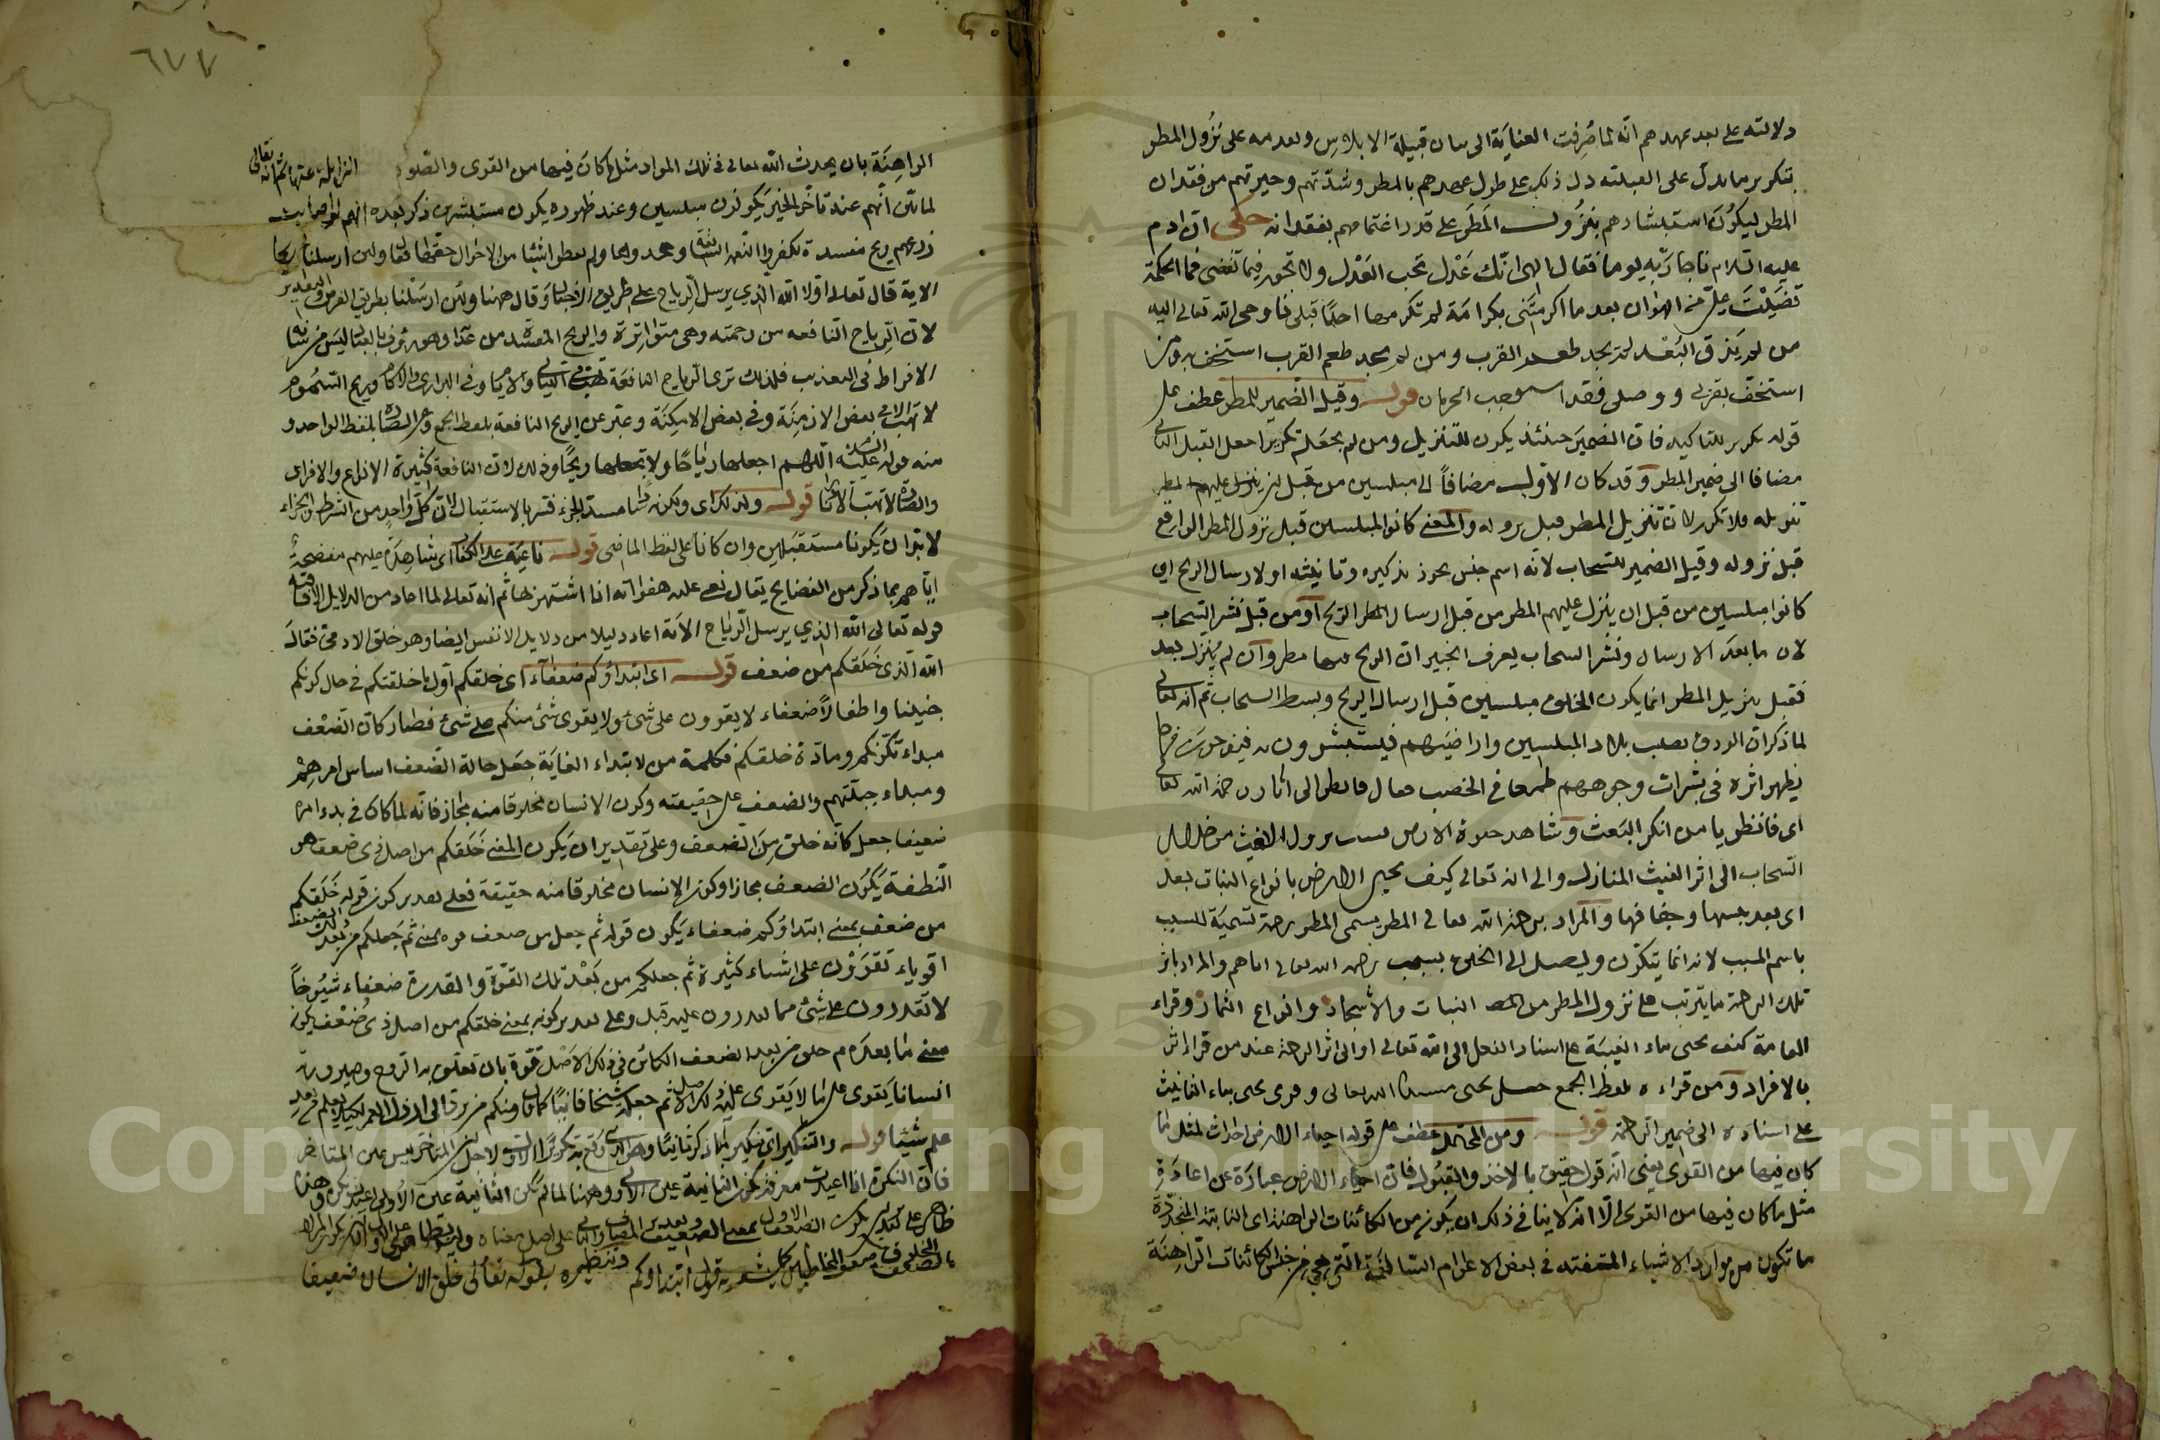 دلالته على بعد عهدهم انه لما صرفت العناية الى بيان قبيلة الابلاس وبعدمه على نزول المطر
بتكرير ما يدل على القبلية دل ذلك على طول عهدهم بالمطر وشدتهم وحيرتهم من فقدان
المطر ليكون استبشارهم بنزول المطر على قدر اغتمامهم بفقدانه حكى ان ادم
عليه السلام ناجا ربه يوما فقال الهى انك عدل تحب العدل ولا تجور فيما تقضى فما الحكمة
من الهوان بعد ما اكرمتنى بكرامة لم تكرم بها احدا قبلى فاوحى الله تعالى اليه
من لم يذق البعد لم يجد طعم القرب ومن لم يجد طعم القرب استخف به ومن
استخف بقربى ووصلى فقد استوجب الحرمان قوله وقيل الضمير للمطر عطف على
قوله تكرير للتاكيد فان الضمير حينئذ يكون للتنزيل ومن لم يجعله تكريرا جعل القبل الثانى
مضافا الى ضمير المطر وقد كان الاول مضافا الى مبلسين من قبل ان ينزل عليهم المطر
تنزيله فلا تكرر لان تنزيل المطر قبل نزوله والمعنى كانوا مبلسين قبل نزول المطر الواقع
قبل نزوله وقيل الضمير للسحاب لانه اسم جنس يجوز تذكيره وتانيثه او لارسال الريح اى
كانوا مبلسين من قبل ان ينزل عليهم المطر من قبل ارسال الريح او من قبل نشر السحاب
لان ما بعد الارسال ونشر السحاب يعرف الخبير ان الريح فيها مطر وان لم ينزل بعد
فقبل تنزيل المطر انما يكون الخلق مبلسين قبل ارسال الريح وبسط السحاب ثم انه تعالى
لما ذكر ان الودق يصيب بلاد المبلسين واراضيهم فيستبشرون به فيفرحون فرحا
يظهر اثره فى بشرات وجوههم طمعا فى الخصب فقال فانظر الى اثار رحمة الله تعالى
اى فانظر يا من انكر البعث وشاهد حيوة الارض بسبب نزول الغيث من خلال
السحاب الى اثر الغيث النازل والى انه تعالى كيف يحيى الارض بانواع النبات بعد
اى بعد يبسها وجفافها والمراد برحمة الله تعالى المطر يسمى المطر رحمة تسمية للسبب
باسم المسبب لانه انما يتكون ويصل الى الخلق بسبب رحمة الله تعالى اياهم والمراد باثر
تلك الرحمة ما يترتب على نزول المطر من النبات والاشجار وانواع الثمار وقراء
العامة كيف يحيى بياء الغيبة على اسناد الفعل الى الله تعالى او الى اثر الرحمة عند من قراء اثر
بالافراد ومن قراءه بلفظ الجمع جعل يحيى مسندا الى الله تعالى وقرى تحيى بتاء التانيث
على اسناده الى ضمير الرحمة قوله ومن المحتمل عطف على قوله احياء الارض احداث لمثل ما
كان فيها من القوى يعنى انه قول حقيق بالاخذ والقبول فان احياء الارض عبارة عن اعادة
مثل ما كان فيها من القوى الا انه لا ينافى ذلك ان يكون من الكائنات الراهنة اى الثابتة المتجددة
ما تكون من مواد الاشياء المتفتتة فى بعض الاعوام السالفة التى هى من جنس الكائنات الراهنة
الراهنة بان يحدث الله تعالى فى تلك المواد مثل ما كان فيها من القوى والصور الزايلة عنها ثم انه تعالى
لما بين انهم عند تاخر الخير يكونون مبلسين وعند ظهوره يكون مستبشرين ذكر بعده انهم لو اصابت
زرعهم ريح مفسدة لكفروا النعم السابقة وجحدوها ولن ارسلنا ريحا
الاية قال تعالى اولا الله الذى يرسل الرياح على طريق الاخبار وقال ههنا ولئن ارسلنا بطريق الفرض والتقدير
لان الرياح النافعه من رحمته وهى متواترة والريح المفسدة من عذابه وهو رؤف بالعباد ليس من شانه
الافراط فى التعذيب فلذلك ترى الرياح النافعة تهب فى الليالى والايام وفى البرارى والاكام وريح السموم
لا تهب الا فى بعض الازمنة وفى بعض الامكنة وعبر عن الريح النافعة بلفظ الجمع وعن الضارة بلفظ الواحد و
منه قوله عليه السلام اللهم اجعلها رياحا ولا تجعلها ريحا وذلك لان النافعة كثيرة الانواع والافراد
والضارة لا تهب الا قوله ولذلك اى ولكونه سادا مسد الجزاء فسر بالاستقبال لان كل واحد من الشرط والجزاء
لا بد ان يكونا مستقبلين وان كانا على لفظ الماضى قوله ناعية على الكفار اى شاهدة عليهم مفضحة
اياهم بما ذكر من الفضايح يقال نعى عليه هفواته اذا اشتهر بها ثم انه تعالى لما اعاد من الدلايل الافاقية
قوله تعالى الله الذى يرسل الرياح الاية اعاد دليلا من دلايل الانفس ايضا وهو خلق الادمى فقال
الله الذى خلقكم من ضعف قوله اى ابتداؤكم ضعفاء اى خلقكم اول ما خلقتكم فى حال كونكم
جنينا واطفالا ضعفاء لا يقوون على شئ ولا يقوى شئ منكم على شئ فصار كان الضعف
مبداء تكونكم ومادة خلقكم فكلمة من لابتداء الغاية جعل حالة الضعف اساس امرهم
ومبداء جبلتهم والضعف على حقيقته وكون الانسان مخلوقا منه مجاز فانه لما كان فى بدء امره
ضعيفا جعل كانه خلق من الضعف وعلى تقدير ان يكون المعنى خلقكم من اصل ذى ضعف هو
النطفة يكون الضعف مجازا وكون الانسان مخلوقا منه حقيقة فعلى تقدير كون قوله خلقكم
من ضعف بمعنى ابتداؤكم ضعفاء يكون قوله ثم جعل من ضعف قوة بمعنى ثم جعلكم من بعد الضعف
اقوياء تقوون على اشياء كثيرة ثم جعلكم من بعد تلك القوة والقدرة ضعفاء شيوخا
لا تقدرون على شئ مما تقدرون عليه قبل وعلى تقدير كونه بمعنى خلقكم من اصل ذى ضعف يكون
معنى ما بعده ثم خلق من بعد الضعف الكائن فى ذلك الاصل قوة بان تعلق به الروح وصيرورته
انسانا يقوى على ما لا يقوى عليه ذلك الاصل ثم جعلكم شيخا فانيا كما قال ومنكم من يرد الى ارذل العمر لكيلا يعلم من بعد
علم شيئا قوله والتنكير اى تنكير ما ذكر ثانيا
فان النكرة اذا اعيدت معرفة تكون الثانية عين الاولى وههنا لما لم تكن الثانية عين الاولى وهذا
ظاهر على تقدير كون الضعف الاول بمعنى الضعيف على اصل معناه
قوله ابتداؤكم وتنظيره بقوله تعالى خلق الانسان ضعيفا
٦٧٧
Copyright © King Saud University
1957